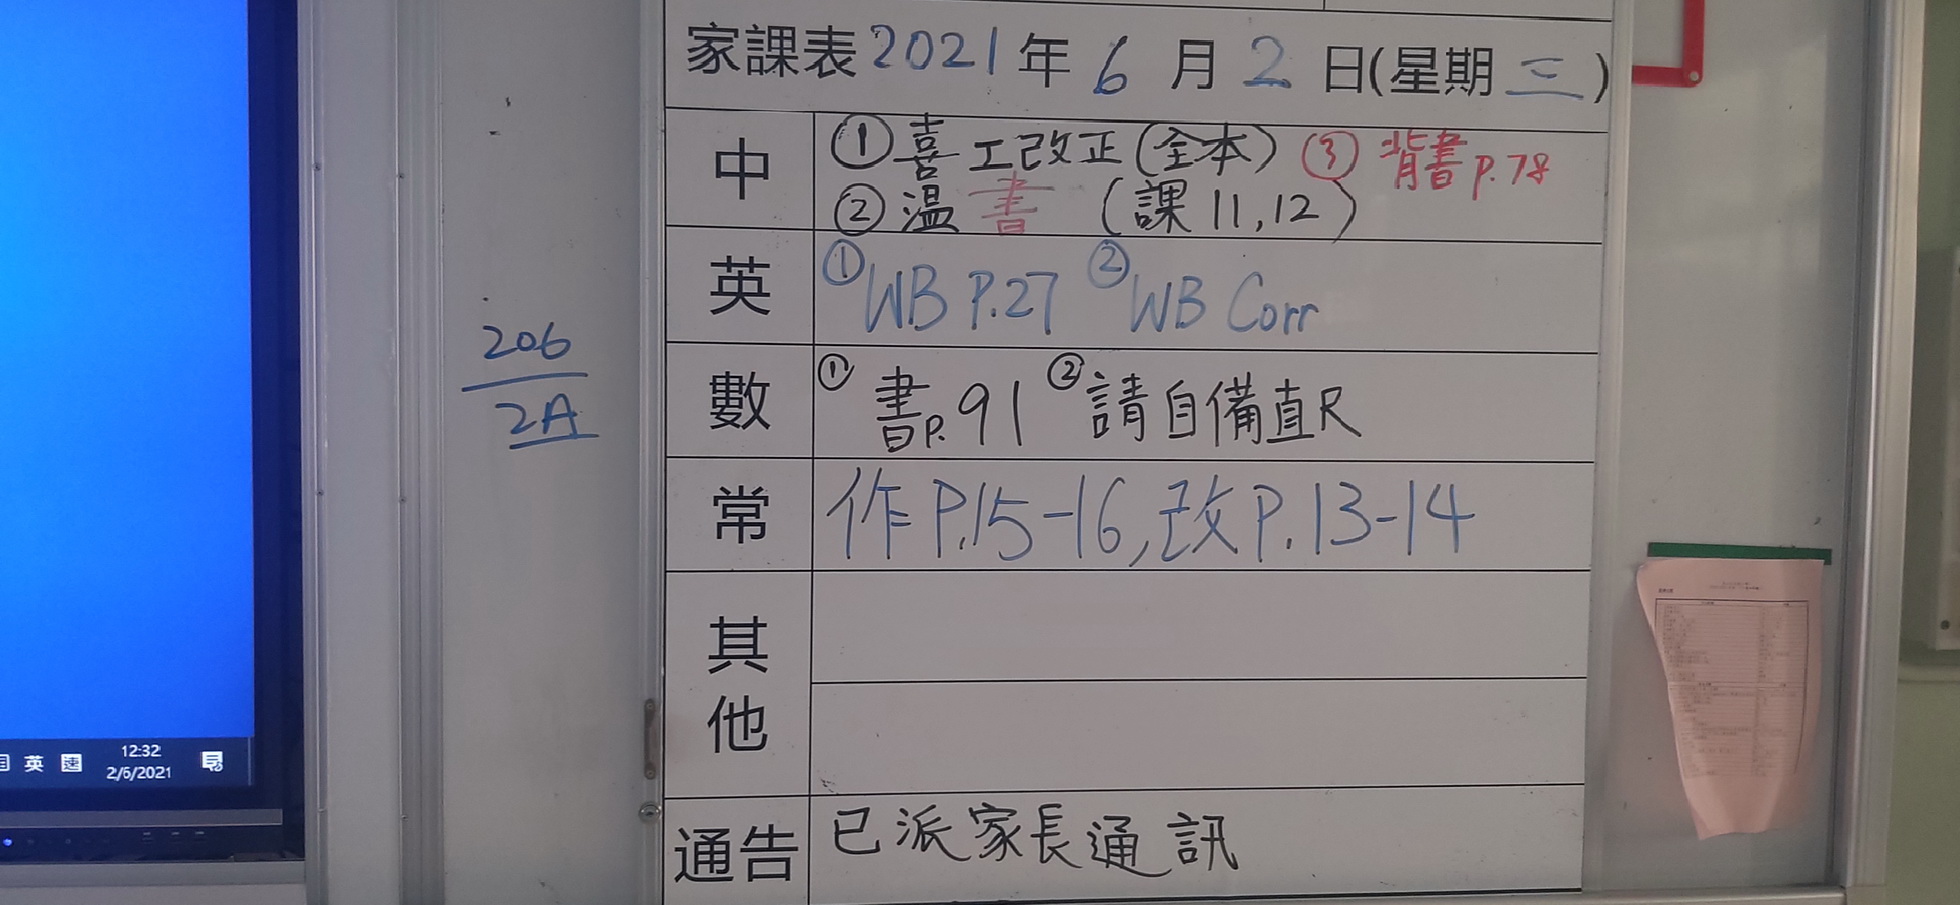 家課表 2021 年 6 月 2 日(星期 三)
中
① 喜 工改正(全本) ③ 背書 p.78
② 溫 書 (課 11,12)
英
① WB P.27 ② WB Corr
數
① 書p.91 ② 請自備直尺
常
作 P.15-16,改 P.13-14
其他
通告
已派家長通訊
206
2A
英 速
12:32
2/6/2021